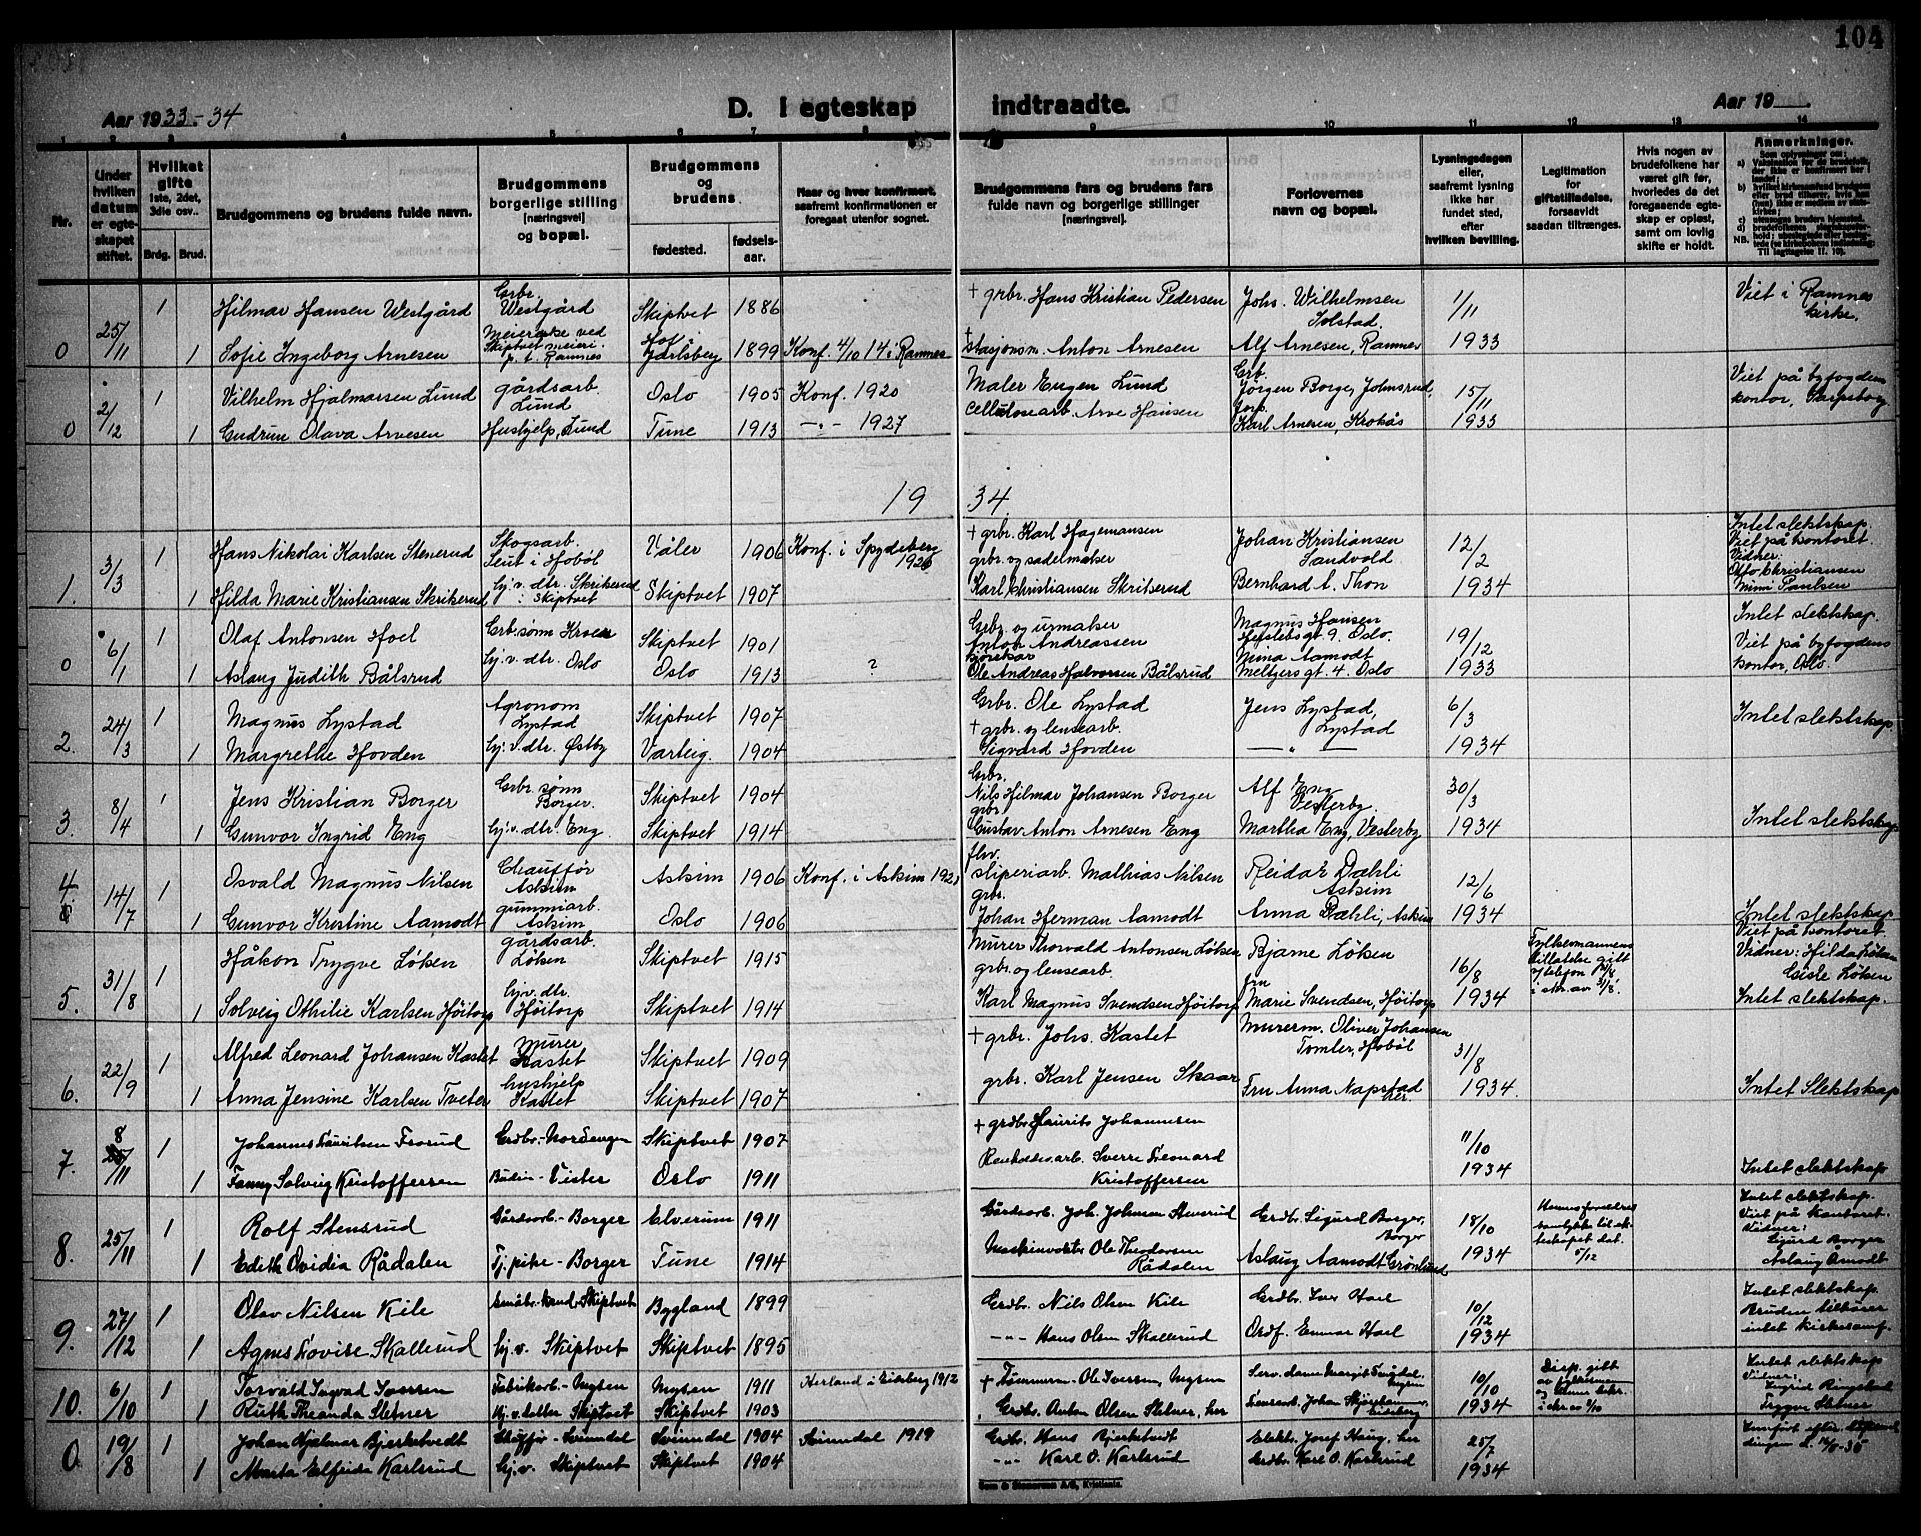 104
Aar 1933-34
D. I egteskap indtraadte.
Aar 19
1 2 3 4 5 6 7 8 9 10 11 12 13 14
Nr.
Under hvilken datum er egteskapet stiftet.
Hvilket gifte
1ste, 2det, 3die osv..
Brdg. Brud.
Brudgommens og brudens fulde navn.
Brudgommens borgerlige stilling (næringsvei) og bopæl.
Brudgommens og brudens
fødested.
fødsels-aar.
Naar og hvor konfirmert, saafremt konfirmationen er foregaat utenfor sognet.
Brudgommens fars og brudens fars fulde navn og borgerlige stillinger (næringsvei).
Forlovernes navn og bopæl.
Lysningsdagen eller, saafremt lysning ikke har fundet sted, efter hvilken bevilling.
Legitimation for giftetilladelse, forsaavidt saadan tiltrænges.
Hvis nogen av brudefolkene har været gift før, hvorledes da det foregaaende egteskap er opløst, samt om lovlig skifte er holdt.
Anmerkninger.
0 25/11 1 Hilmar Hansen Westgård Grbr. Westgård Skiptvet 1886 + grbr. Hans Kristian Pedersen Johs. Wilhelmsen Solstad. 1/11 1933 Viet i Ramnes kirke.
1 Sofie Ingeborg Arnesen Meierske ved Skiptvet meieri p. t. Ramnes Hof Jarlsberg 1899 Konf. 4/10 14 i Ramnes + stasjonsm. Anton Arnesen Alf Arnesen, Ramnes
0 2/12 1 Vilhelm Hjalmarsen Lund gårdsarb. Lund Oslo 1905 Konf. 1920 Maler Eugen Lund Grb. Jørgen Borge, Johnsrud, 15/11 1933 Viet på byfogdens kontor, Sarpsborg
1 Gudrun Olava Arnesen Hushjelp, Lund Tune 1913 -"- 1927 Cellulosearb. Arne Hansen Karl Arnesen, Krokås
1934.
1. 3/3 1 Hans Nikolai Karlsen Stenerud Skogsarb. Sent i Hobøl Våler 1906 Konf. i Spydeberg + grbr. Karl Hagemansen Johan Kristiansen Sandvold 12/2 1934 Intet slektskap. Viet på kontoret. Vidner: Otto Christiansen Mimi Paulsen
1 Hilda Marie Kristiansen Skrikerud hj. v. dtr. Skrikerud i Skiptvet Skiptvet 1907 grbr. og sadelmaker Karl Christiansen Skrikerud Bernhard A. Thon
0 6/1 1 Olaf Antonsen Hoel Grb. sønn Kroer Skiptvet 1901 Grbr. og urmaker Anton Andreassen Magnus Hansen Heslebsgt 9. Oslo. 19/12 1933 Intet slektskap. Viet på byfogdens kontor, Oslo.
1 Aslaug Judith Bålsrud hj. v. dtr. Oslo Oslo 1913 ? kjørekar Ole Andreas Halvorsen Bålsrud Mina Aamodt Meltzersgt. 4. Oslo
2. 24/3 1 Magnus Lystad Agronom Lystad Skiptvet 1907 Grbr. Ole Lystad Jens Lystad, Lystad 6/3 1934 Intet slektskap.
1 Margrethe Hovden hj. v. dtr. Østby Varteig. 1904 + grbr. og lensearb. Sigvard Hovden -"-
3. 8/4 1 Jens Kristian Borger Grbr. sønn Borger. Skiptvet 1904 Grbr. Nils Hilmar Johansen Borger Alf Eng Vesterby. 30/3 1934 Intet slektskap
1 Gunvor Ingrid Eng hj. v. dtr. Eng. Skiptvet 1914 grbr. Gustav Anton Arnesen Eng Martha Eng, Vesterby
4. 14/7 1 Osvald Magnus Nilsen Chauffør Askim Askim 1906 Konf. i Askim fhv. sliperiarb. Mathias Nilsen Reidar Dæhli Askim 12/6 1934 Intet slektskap
1 Gunvor Kristine Aamodt gummiarb. Askim Oslo 1906 grbr. Johan Herman Aamodt Anna Dæhli, Askim
5. 31/8 1 Håkon Trygve Løken gårdsarb. Løken Skiptvet 1915 Murer Thorvald Antonsen Løken Bjarne Løken 16/8 1934 Fylkesmannens tillatelse gitt i skr. av 31/8. Viet på kontoret. Vidner: Hilda Løken Gisle Løken Intet slektskap.
1 Solveig Othilie Karlsen Høitorp hj. v. dtr. Høitorp Skiptvet 1914 grbr. og lensearb. Karl Magnus Svendsen Høitorp fru Marie Svendsen, Høitorp
6. 22/9 1 Alfred Leonard Johansen Kastet Murer Kastet Skiptvet 1909 + grbr. Johs. Kastet Murerm. Oliver Johansen Tomter, Hobøl 31/8 1934. Intet Slektskap
1 Anna Jensine Karlsen Tveter hushjelp Kastet Skiptvet 1907 grbr. Karl Jensen Skaar Fru Anna Napstad her.
7. 8/11 1 Johannes Lauritsen Frorud Grdbr.-Nordengen Skiptvet 1907 + grdbr. Laurits Johannesen 11/10 1934 Intet slektskap
1 Fanny Solveig Kristoffersen Oslo 1911 Renholdsarb. Sverre Leonard Kristoffersen
8. 25/11 1 Rolf Stensrud Gårdsarb.-Borger Elverum 1911 Gårdsarb. Joh. Johnsen Stensrud Grdbr. Sigurd Borger, Borger 18/10 1934 5/12 Intet slektskap. Viet på kontoret. Vidner: Sigurd Borger Aslaug Åmodt
1 Edith Ovidia Rådalen Tj. pike-Borger Tune 1914 Maskinvokter Ole Theodorsen Rådalen Aslaug Aamodt Grønlund
9. 27/12 1 Olav Nilsen Kile Skiptvet Bygland 1899 Grdbr. Nils Olsen Kile Grdbr. Iver Hoel 10/12 1934 Intet slektskap. Bruden tilhører intet kirkesamf.
1 Agnes Lovise Skallerud hj. v. Skiptvet Skiptvet 1895 -"- Hans Olsen Skallerud Ordf. Einar Hoel
10. 6/10 1 Torvald Ingvad Iversen Fabrikarb.-Mysen Mysen 1911 Herland i Eidsberg 1912 + Tømmerm. Ole Iversen, Mysen 10/10 1934 Disp. gitt av fylkesman Intet slektskap Vidner: Ingrid Ringstad Trygve Sletner
1 Ruth Theanda Sletner hj. v. datter Skiptvet Skiptvet 1903 Grdbr. Anton Olsen Sletner, her
0 19/8 1 Johan Hjalmar Bjerketvedt Svindal Svindal 1904 Svindal 1919 Grdbr. Hans Bjerketvedt Elektr. Josef Haug, her 25/7 1934
1 Marta Elfrida Karlsrud hj. v. Skiptvet Skiptvet 1904 -"- Karl O. Karlsrud Grdbr. Karl O. Karlsrud